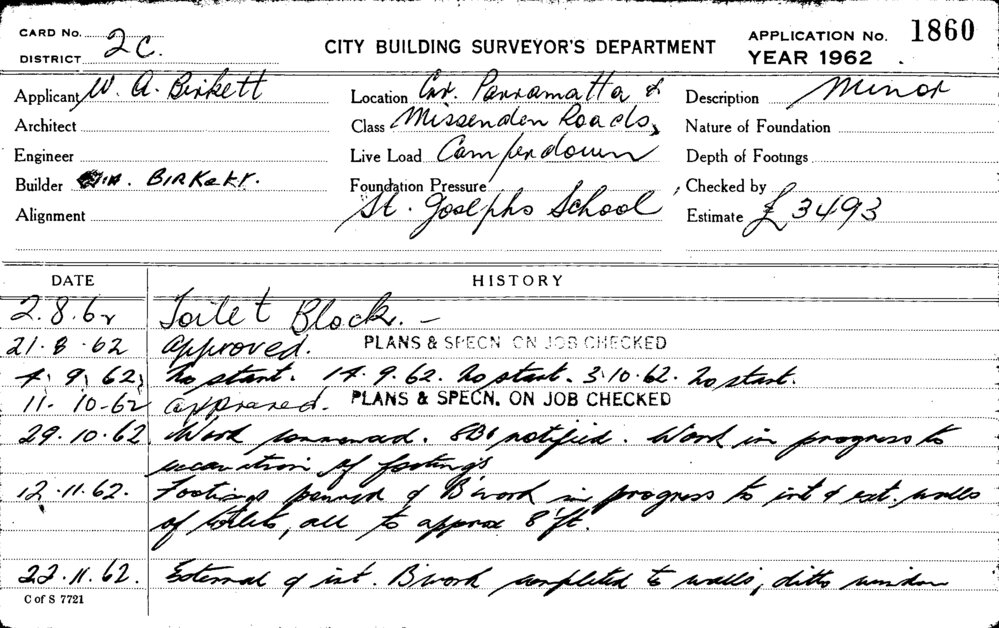 CARD No. 2C.
DISTRICT
CITY BUILDING SURVEYOR'S DEPARTMENT
APPLICATION No. 1860
YEAR 1962
Applicant W. A. Birkett
Location Cnr. Parramatta &
Description Minor
Architect
Class Missenden Roads,
Nature of Foundation
Engineer
Live Load Camperdown
Depth of Footings
Builder BIRKETT.
Foundation Pressure
Checked by
Alignment
St. Josephs School
Estimate £3493
DATE HISTORY
2.8.62 Toilet Block. —
21.8.62 approved. PLANS & SPECN. ON JOB CHECKED
4.9.62, No start. 14.9.62. No start. 3.10.62. No start.
11.10-62 approved. PLANS & SPECN. ON JOB CHECKED
29.10.62 Work commenced. notified. Work in progress to
excavation of footings
12.11.62. Footings poured & B'work in progress to int & ext. walls
of toilets, all to approx 8'ft.
22.11.62. External & int. B'work completed to walls, ditto window
C of S 7721